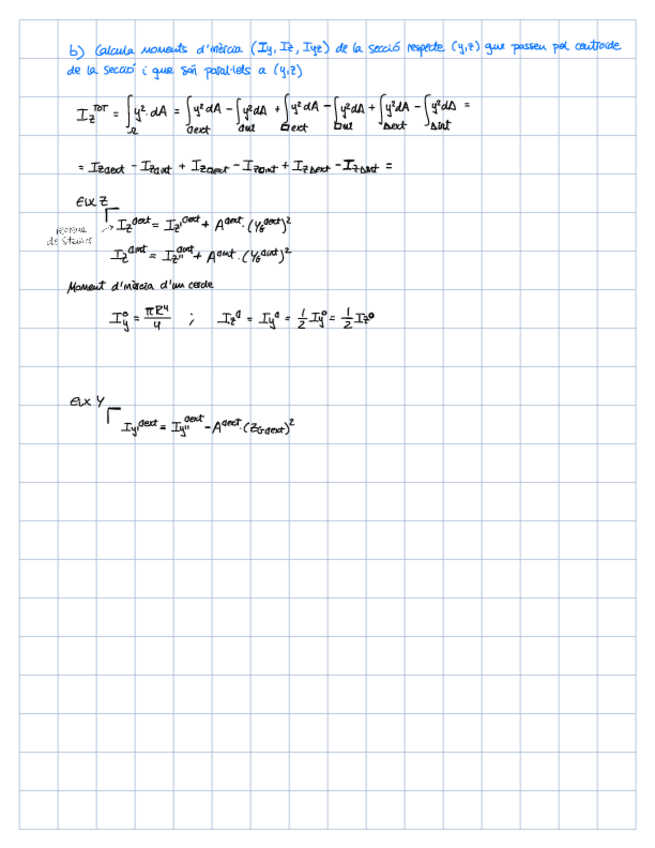 b) Calcula moments d'inèrcia (Iy, Iz, Iyz) de la secció respecte (y,z) que passen pel centroide
de la secció i que són paral·lels a (y,z)
Iz^TOT = ∫_Ω y²·dA = ∫_Dext y²dA - ∫_Dint y²dA + ∫_□ext y²dA - ∫_□int y²dA + ∫_Δext y²dA - ∫_Δint y²dA =
= IzDext - IzDint + Iz□ext - Iz□int + IzΔext - IzΔint =
EIX Z
Iz^Dext = Iz'^Dext + A^Dext · (yG^Dext)²
teorema
de Steiner
Iz^Dint = Iz''^Dint + A^Dint · (yG^Dint)²
Moment d'inèrcia d'un cercle
Iy^o = πR⁴/4 ; Iz^D = Iy^D = 1/2 Iy^o = 1/2 Iz^o
EIX Y
Iy'^Dext = Iy''^Dext - A^Dext · (zG Dext)²